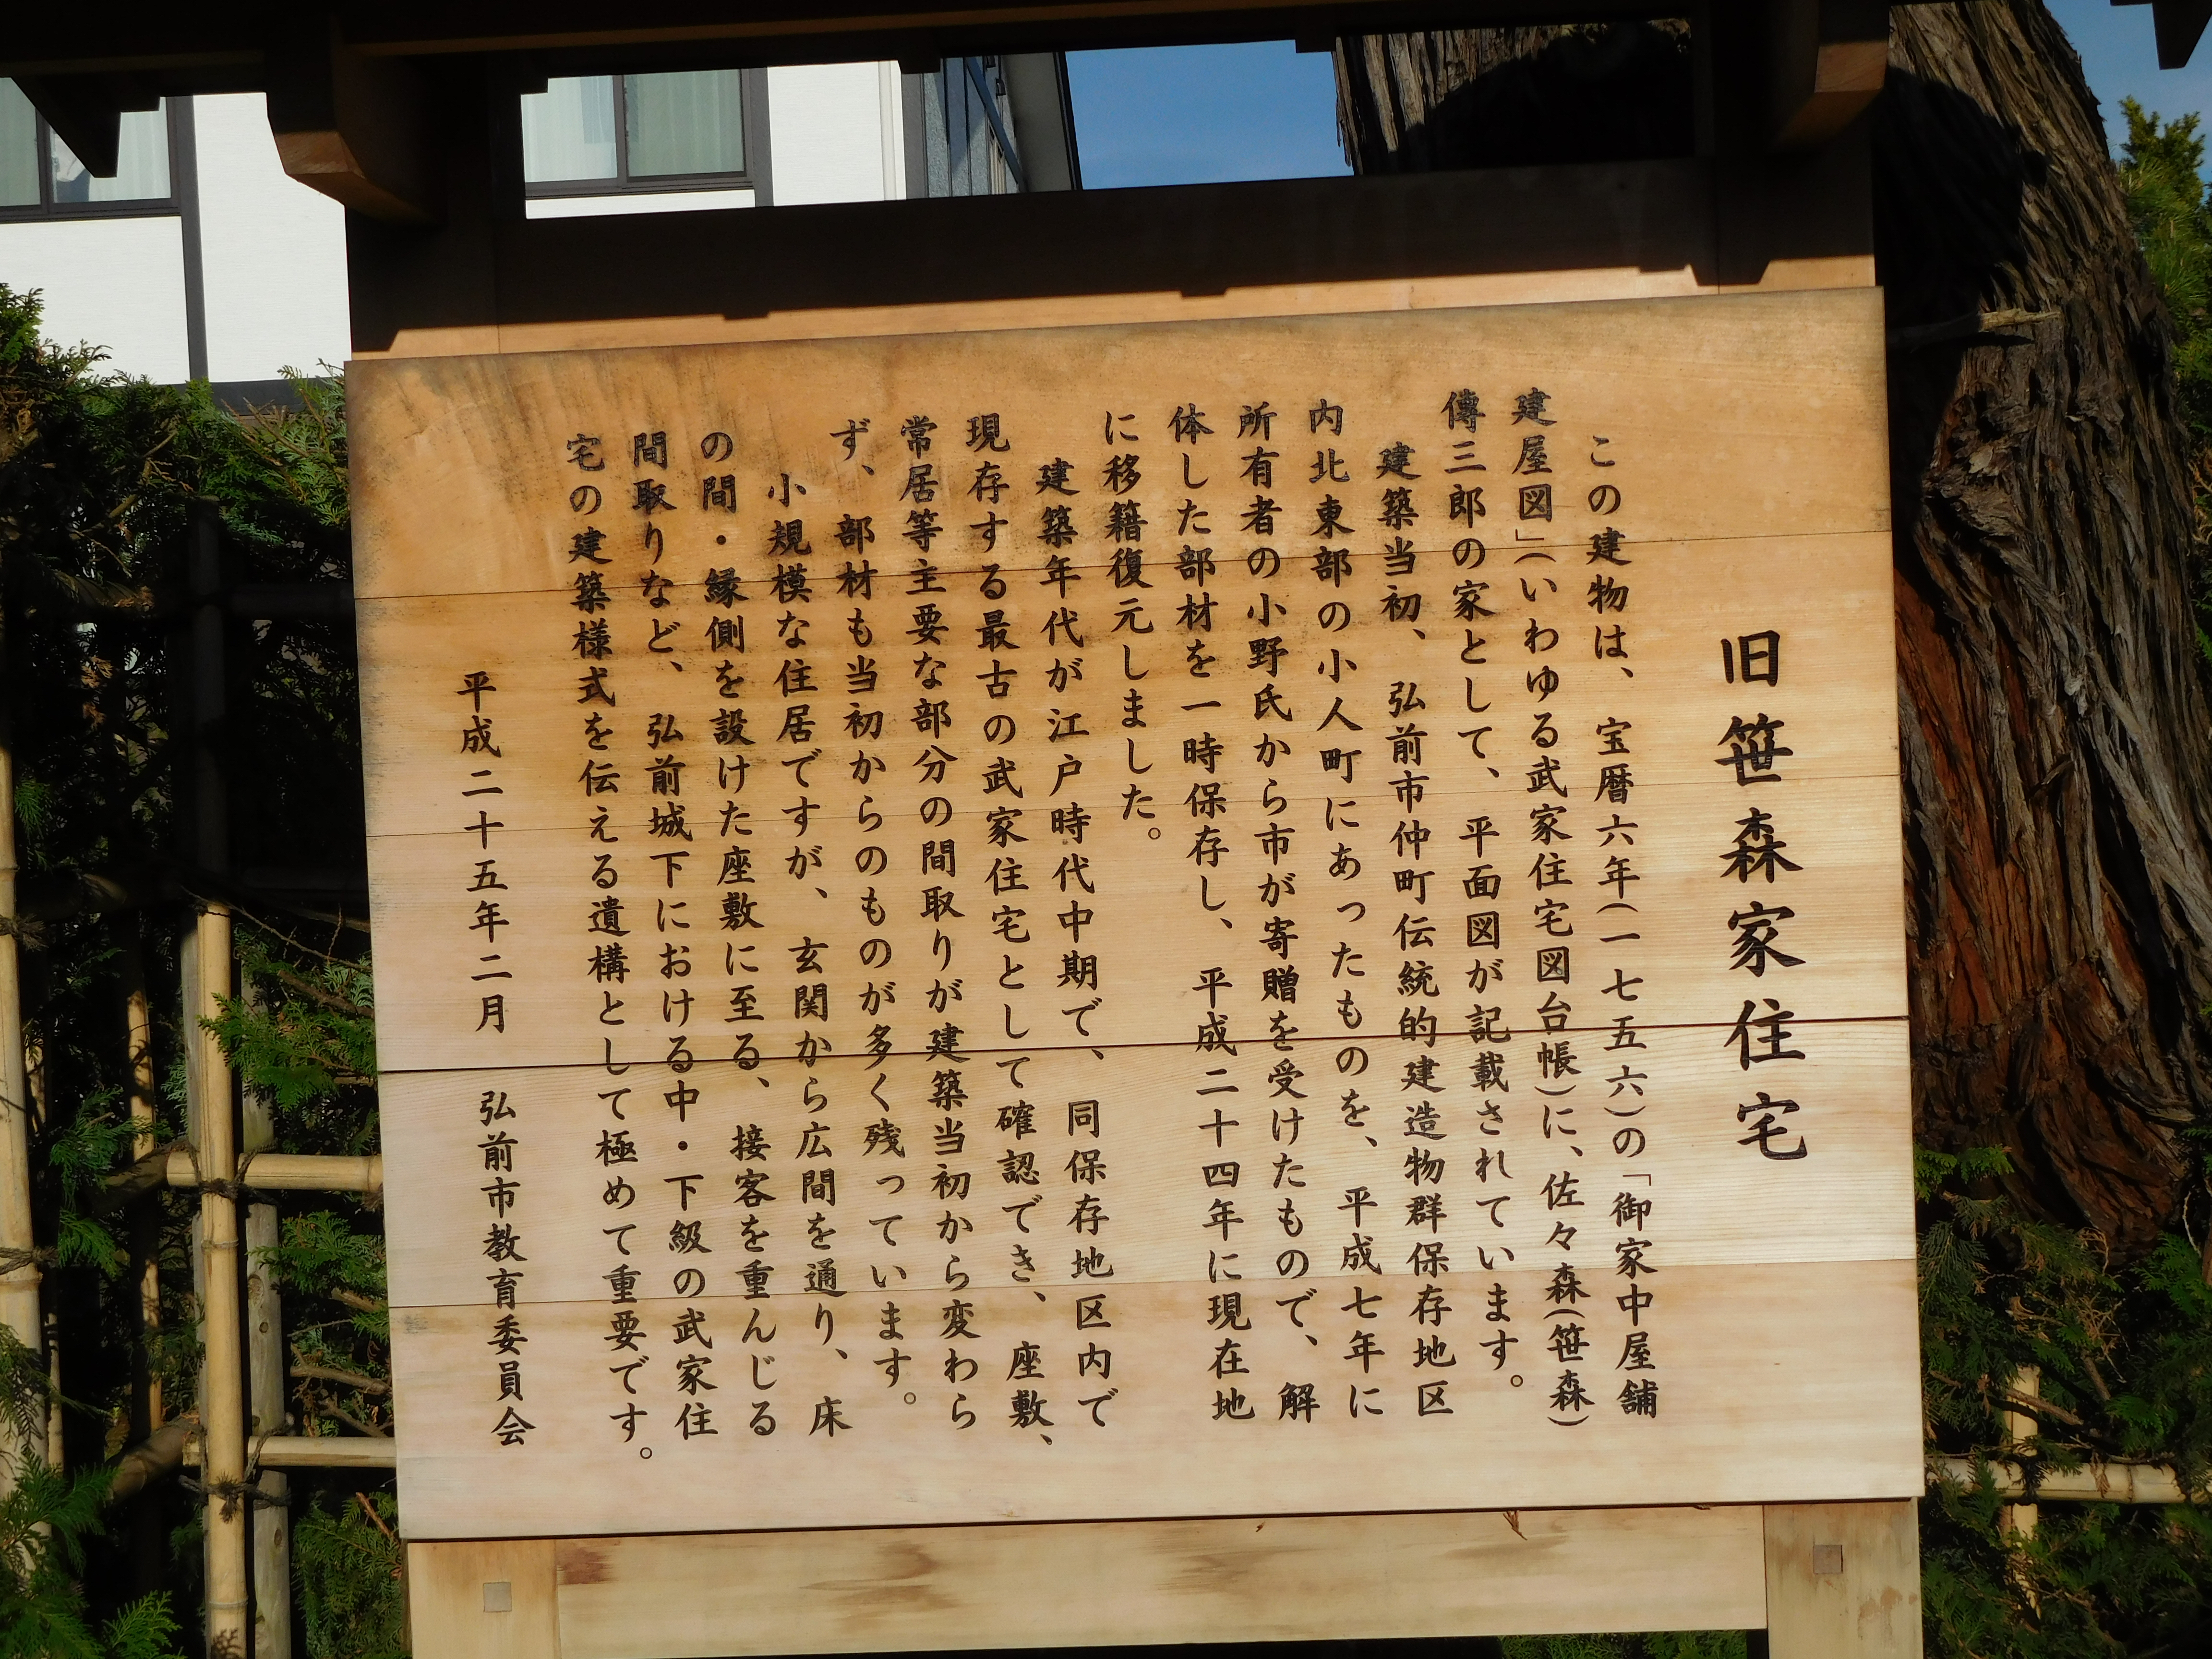 旧笹森家住宅
この建物は、宝暦六年(一七五六)の「御家中屋舗
建屋図」(いわゆる武家住宅図台帳)に、佐々森(笹森)
傳三郎の家として、平面図が記載されています。
建築当初、弘前市仲町伝統的建造物群保存地区
内北東部の小人町にあったものを、平成七年に
所有者の小野氏から市が寄贈を受けたもので、解
体した部材を一時保存し、平成二十四年に現在地
に移籍復元しました。
建築年代が江戸時代中期で、同保存地区内で
現存する最古の武家住宅として確認でき、座敷、
常居等主要な部分の間取りが建築当初から変わら
ず、部材も当初からのものが多く残っています。
小規模な住居ですが、玄関から広間を通り、床
の間・縁側を設けた座敷に至る、接客を重んじる
間取りなど、弘前城下における中・下級の武家住
宅の建築様式を伝える遺構として極めて重要です。
平成二十五年二月 弘前市教育委員会